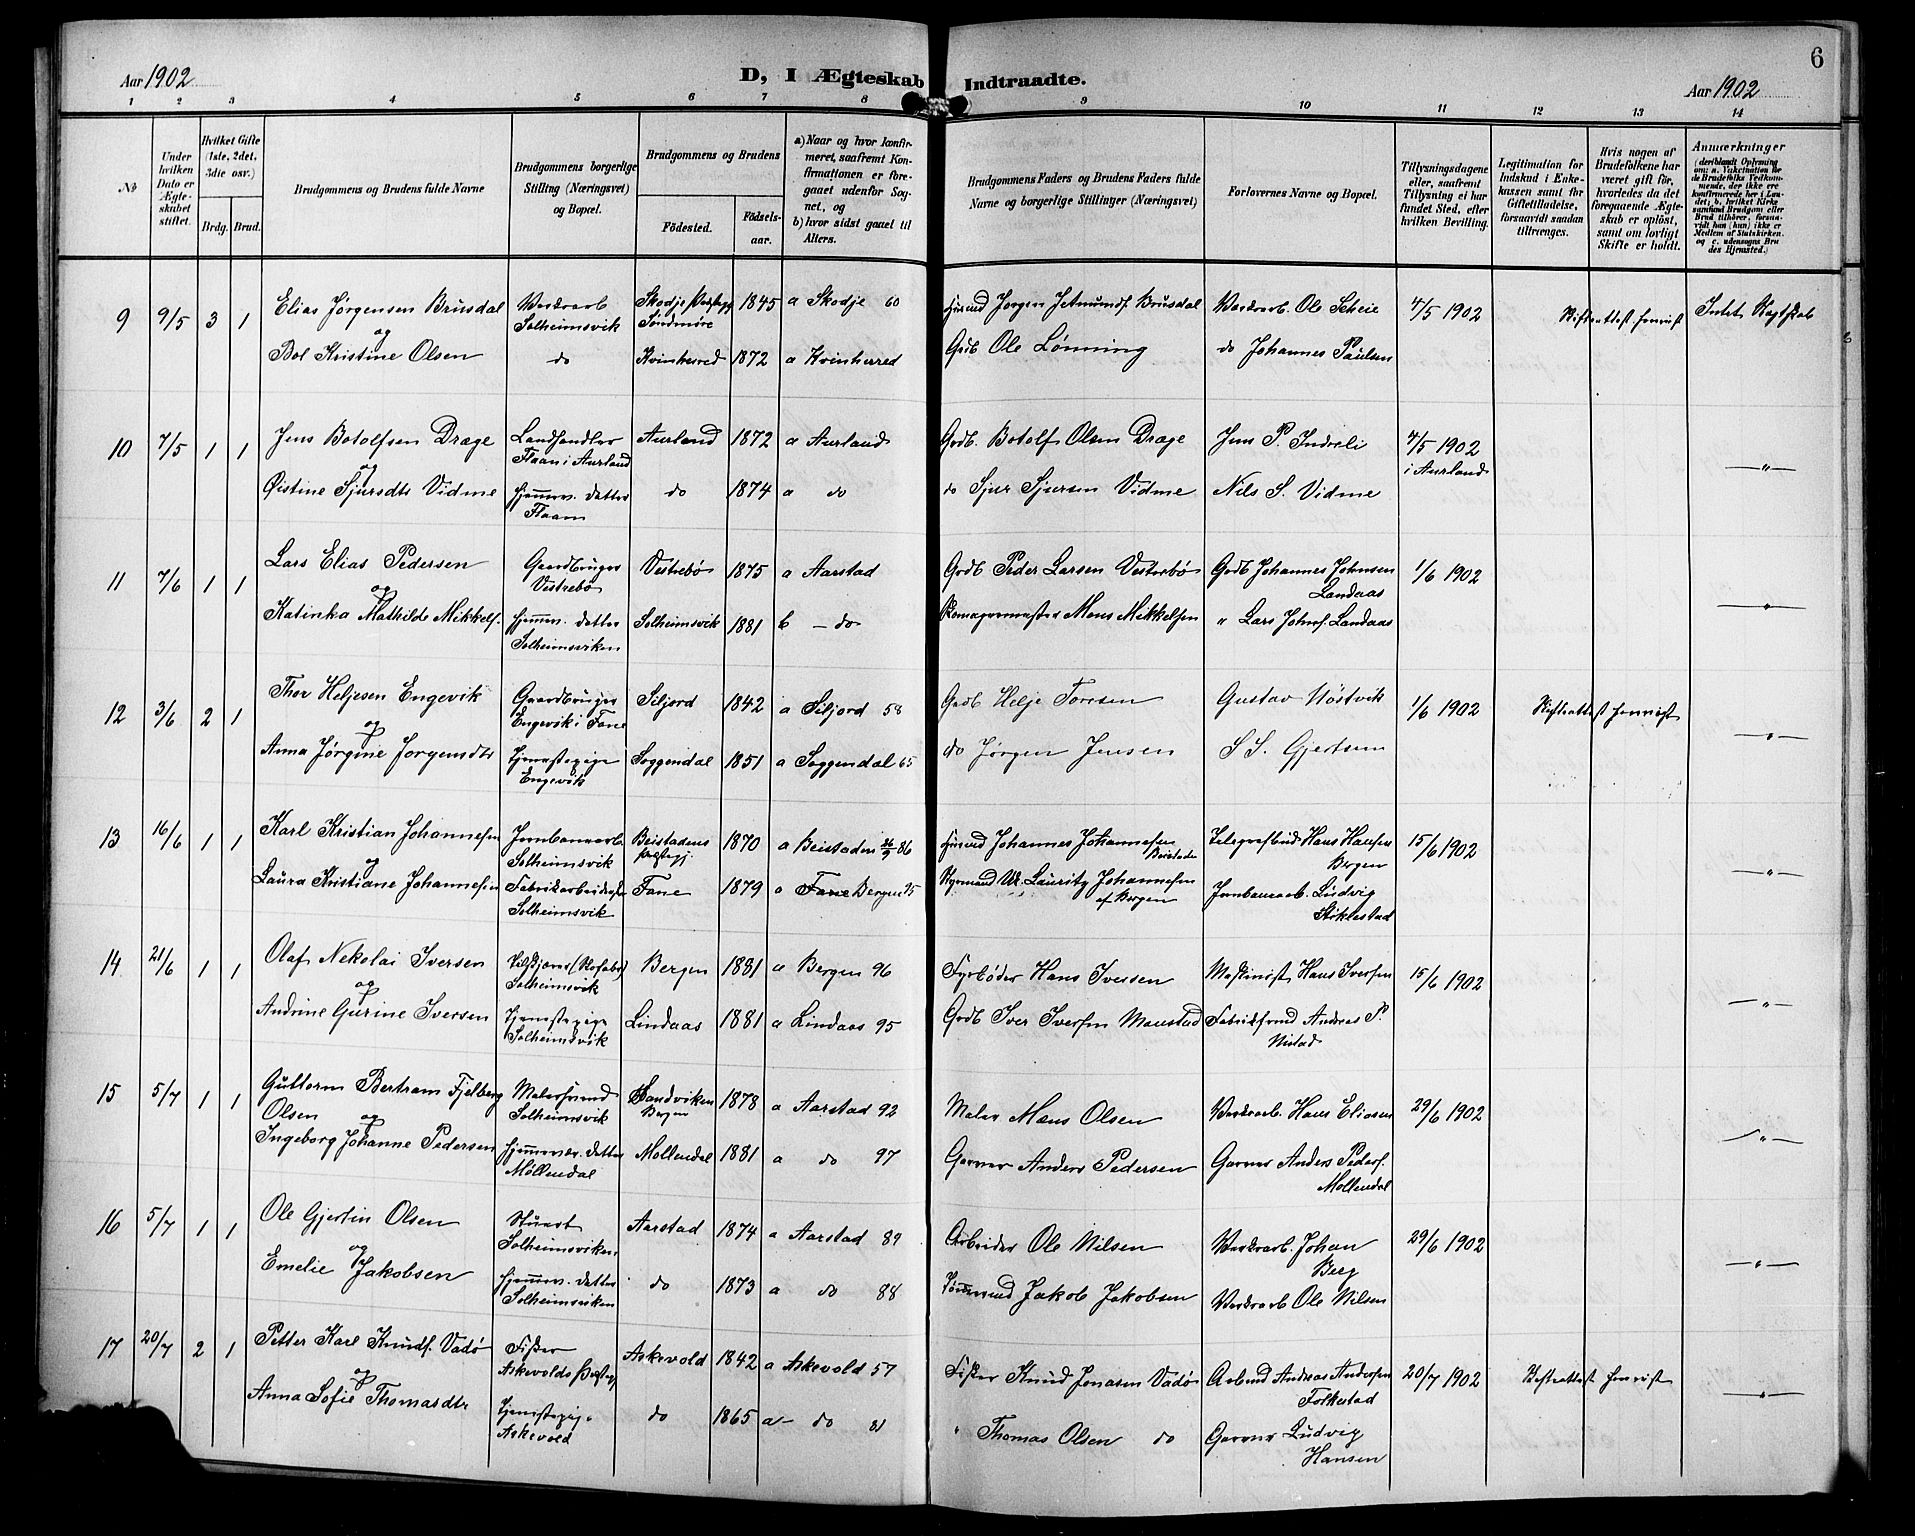 Aar 1902
D, I Ægteskab Indtraadte.
6
Aar 1902
1 2 3 4 5 6 7 8 9 10 11 12 13 14
No
Under hvilken Dato er Ægteskabet stiftet.
Hvilket Gifte (1ste, 2det, 3die osv.)
Brdg. Brud.
Brudgommens og Brudens fulde Navne
Brudgommens borgerlige Stilling (Næringsvei) og Bopæl.
Brudgommens og Brudens
Födested.
Födselsaar.
a) Naar og hvor konfirmeret, saafremt Konfirmationen er foregaaet udenfor Sognet, og
b) hvor sidst gaaet til Alters.
Brudgommens Faders og Brudens Faders fulde Navne og borgerlige Stillinger (Næringsvei)
Forlovernes Navne og Bopæl.
Tillysningsdagene eller, saafremt Tillysning ei har fundet Sted, efter hvilken Bevilling.
Legitimation for Indskud i Enkekassen samt for Giftetilladelse, forsaavidt saadan tiltrænges.
Hvis nogen af Brudefolkene har været gift för, hvorledes da det foregaaende Ægteskab er oplöst, samt om lovligt Skifte er holdt.
Anmærkninger
9 9/5 3 1 Elias Jørgensen Brusdal Solheimsvik Skodje Søndmøre 1845 a Skodje 60 Jørgen Jetmundf. Brusdal Ole Scheie 4/5 1902 Skifteattest forevist Intet Slægtskab
og
Bol Kristine Olsen do Kvinherred 1872 a Kvinherred Gdb Ole Lønning do Johannes Paulsen
10 7/5 1 1 Jens Botolfsen Drage Landhandler Flaam i Aurland Aurland 1872 a Aurland Gdb. Botolf Olsen Drage Jens P. Indreli 4/5 1902 i Aurland — " —
og
Øistine Sjursdtr Vidme hjemmev. datter Flaam do 1874 a do do Sjur Sjursen Vidme Nils S. Vidme
11 7/6 1 1 Lars Elias Pedersen Gaardbruger Vestrebø Vestrebø 1875 a Aarstad Gdb Peder Larsen Vestrebø Gdb Johannes Johnsen Landaas 1/6 1902 — " —
og
Katinka Mathilde Mikkelf. hjemmev. datter Solheimsviken Solheimsvik 1881 b — do Mons Mikkelsen " Lars Johnf. Landaas
12 3/6 2 1 Thor Heljesen Engevik Gaardbruger Engevik i Fane Siljord 1842 a Siljord 58 Gdb Helje Torsen Gustav Nøstvik 1/6 1902 Skifteattest forevist — " —
og
Anna Jørgine Jørgensdtr Tjenestepige Engevik Soggendal 1851 a Soggendal 65 do Jørgen Jensen S. S. Gjertsen
13 16/6 1 1 Karl Kristian Johannesen Jernbanearb. Solheimsvik Beistadens præstegj. 1870 a Beistaden 26/9 86 Husmd Johannes Johannesen Beistaden Telegrafbud Hans Hansen Bergen 15/6 1902 — " —
og
Laura Kristiane Johannesen Fabrikarbeiderske Solheimsvik Fane 1879 a Fane Bergen 95 Styrmand Lauritz Johannesen af Bergen Jernbanearb. Ludvig Stiklestad
14 21/6 1 1 Olaf Nekolai Iversen Solheimsvik Bergen 1881 a Bergen 96 Fyrbøder Hans Iversen Maskinist Hans Iversen 15/6 1902 — " —
og
Andrine Gurine Iversen Tjenestepige Solheimsvik Lindaas 1881 a Lindaas 95 Gdb Iver Iversen Monstad Andreas P. Nistad
15 5/7 1 1 Guttorm Bertram Fjelberg Olsen Malersvend Solheimsvik Sandviken Bergen 1878 a Aarstad 92 Maler Mons Olsen Verksarb. Hans Eliasen 29/6 1902 — " —
og
Ingeborg Johanne Pedersen hjemmevær. datter Møllendal Møllendal 1881 a do 97 Garver Anders Pedersen Garver Anders Pedersf. Møllendal
16 5/7 1 1 Ole Gjertin Olsen Stuert Solheimsviken Aarstad 1874 a Aarstad 89 Arbeider Ole Nilsen Verksarb. Johan Berg 29/6 1902 — " —
og
Emelie Jakobsen hjemmev. datter Solheimsviken do 1873 a do 88 Tømmermd Jakob Jakobsen Verksarb Ole Nilsen
17 20/7 2 1 Petter Karl Knudf. Vadø Fisker Askevolds Præstegj Askevold 1842 a Askevold 57 Fisker Knud Jonasen Vadø Andreas Andersen Folkestad 20/7 1902 Skifteattest forevist — " —
og
Anna Sofie Thomasdtr Tjenestepige Askevold do 1865 a — do 81 " Thomas Olsen do Garver Ludvig Hansen